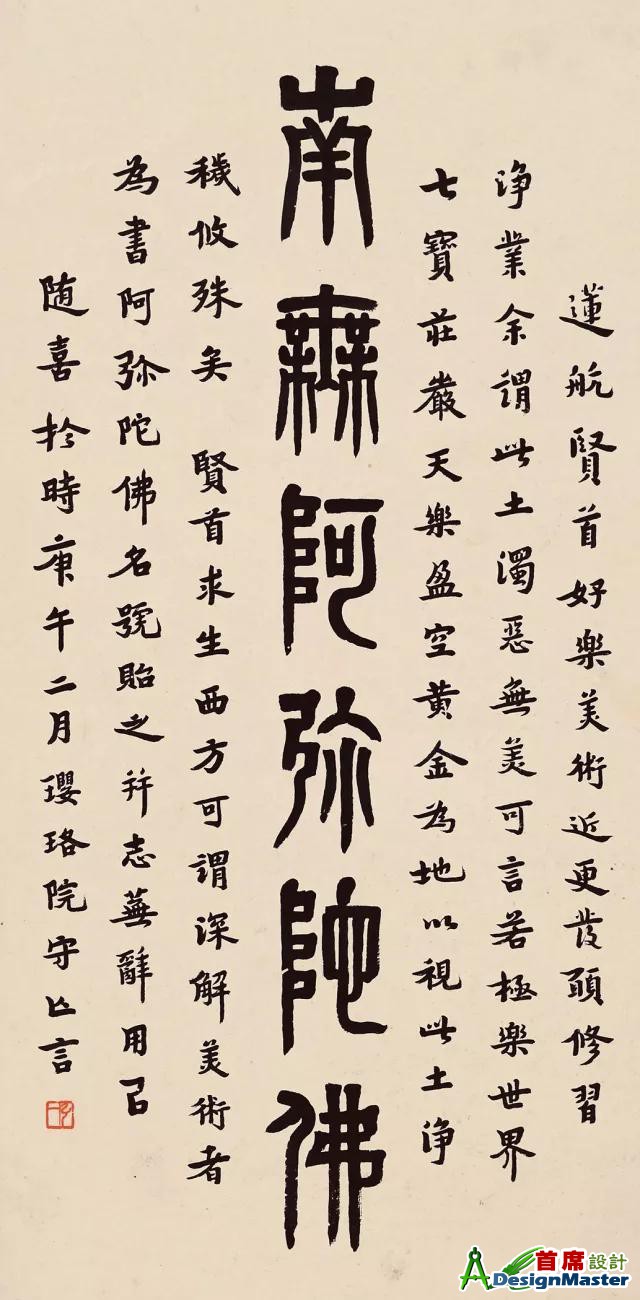 蓮航賢首好樂美術近更發願修習
浄業余謂此土濁惡無美可言若極樂世界
七寶莊嚴天樂盈空黃金為地以視此土浄
南無阿弥陀佛
穢攸殊矣 賢首求生西方可謂深解美術者
為書阿弥陀佛名號貽之并志蕪辭用㠯
随喜於時庚午二月瓔珞院守亡言
首席設計
DesignMaster